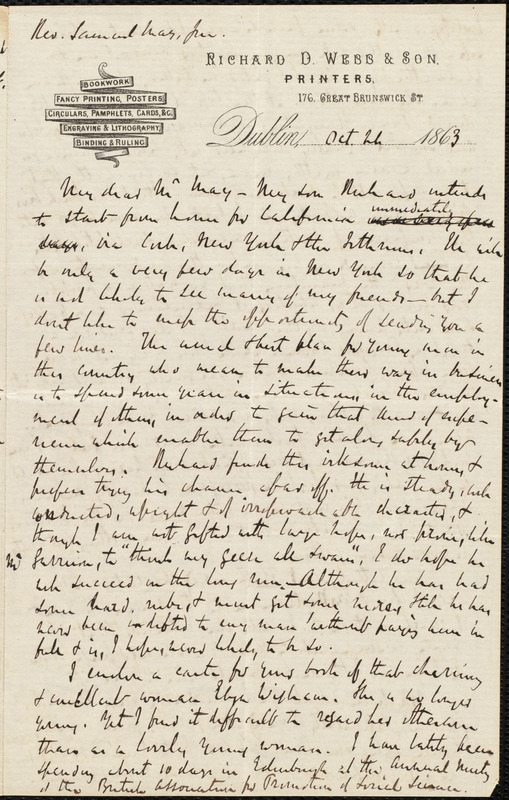 Rev. Samuel May, Jun.
RICHARD D. WEBB & SON,
PRINTERS,
176, GREAT BRUNSWICK ST.
BOOKWORK
FANCY PRINTING, POSTERS,
CIRCULARS, PAMPHLETS, CARDS, &C.
ENGRAVING & LITHOGRAPHY,
BINDING & RULING
Dublin, Oct 26 1863
My dear Mr May – My son Richard intends
to start from home for California immediately
via Cork, New York & the Isthmus. He will
be only a very few days in New York so that he
is not likely to see many of my friends – but I
don't like to miss the opportunity of sending you a
few lines. The usual & best plan for young men in
this country who mean to make their way in business
is to spend some years in situations in the employ-
ment of others, in order to gain that kind of expe-
rience which enables them to get along safely by
themselves. Richard finds this irksome at home, &
prefers trying his chance afar off. He is steady, well
conducted, upright & of irreproachable character, &
though I am not gifted with large hope, nor prone, like
Mr Garrison, to "think my geese all swans", I do hope he
will succeed in the long run – Although he has had
some hard rubs, & must get some more, still he has
never been indebted to any man without paying him in
full & is, I hope, never likely to be so.
I enclose a carte for your book of that charming
& excellent woman Eliza Wigham. She is no longer
young. Yet I find it difficult to regard her otherwise
than as a lovely young woman. I have lately been
spending about 10 days in Edinburgh at the Annual Meeting
of the British Association for Promotion of Social Science.